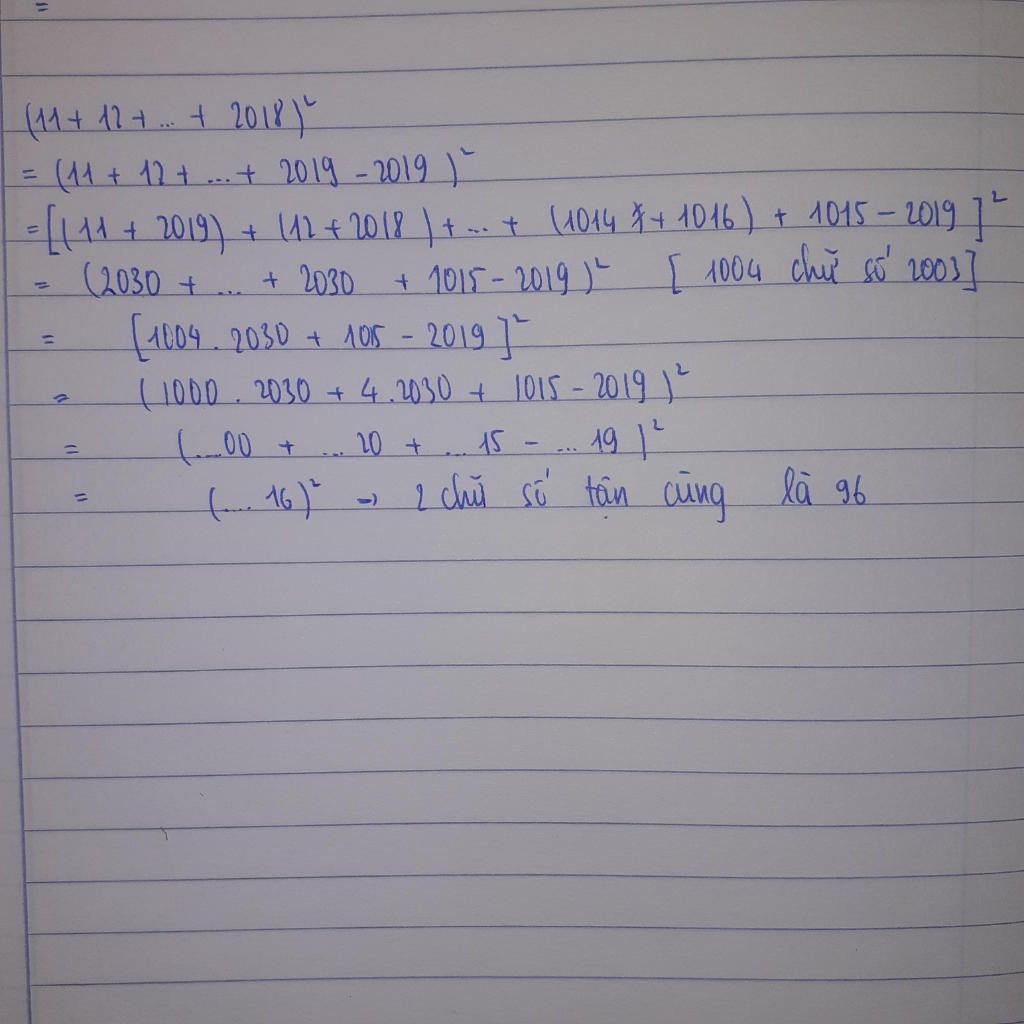 =
(11 + 12 + ... + 2018)²
= (11 + 12 + ... + 2019 - 2019)²
= [(11 + 2019) + (12 + 2018) + ... + (1014 + 1016) + 1015 - 2019]²
= (2030 + ... + 2030 + 1015 - 2019)² [1004 chữ số 2003]
= [1004 . 2030 + 105 - 2019]²
= (1000 . 2030 + 4 . 2030 + 1015 - 2019)²
= (...00 + ...20 + ...15 - ...19)²
= (...16)² → 2 chữ số tận cùng là 96